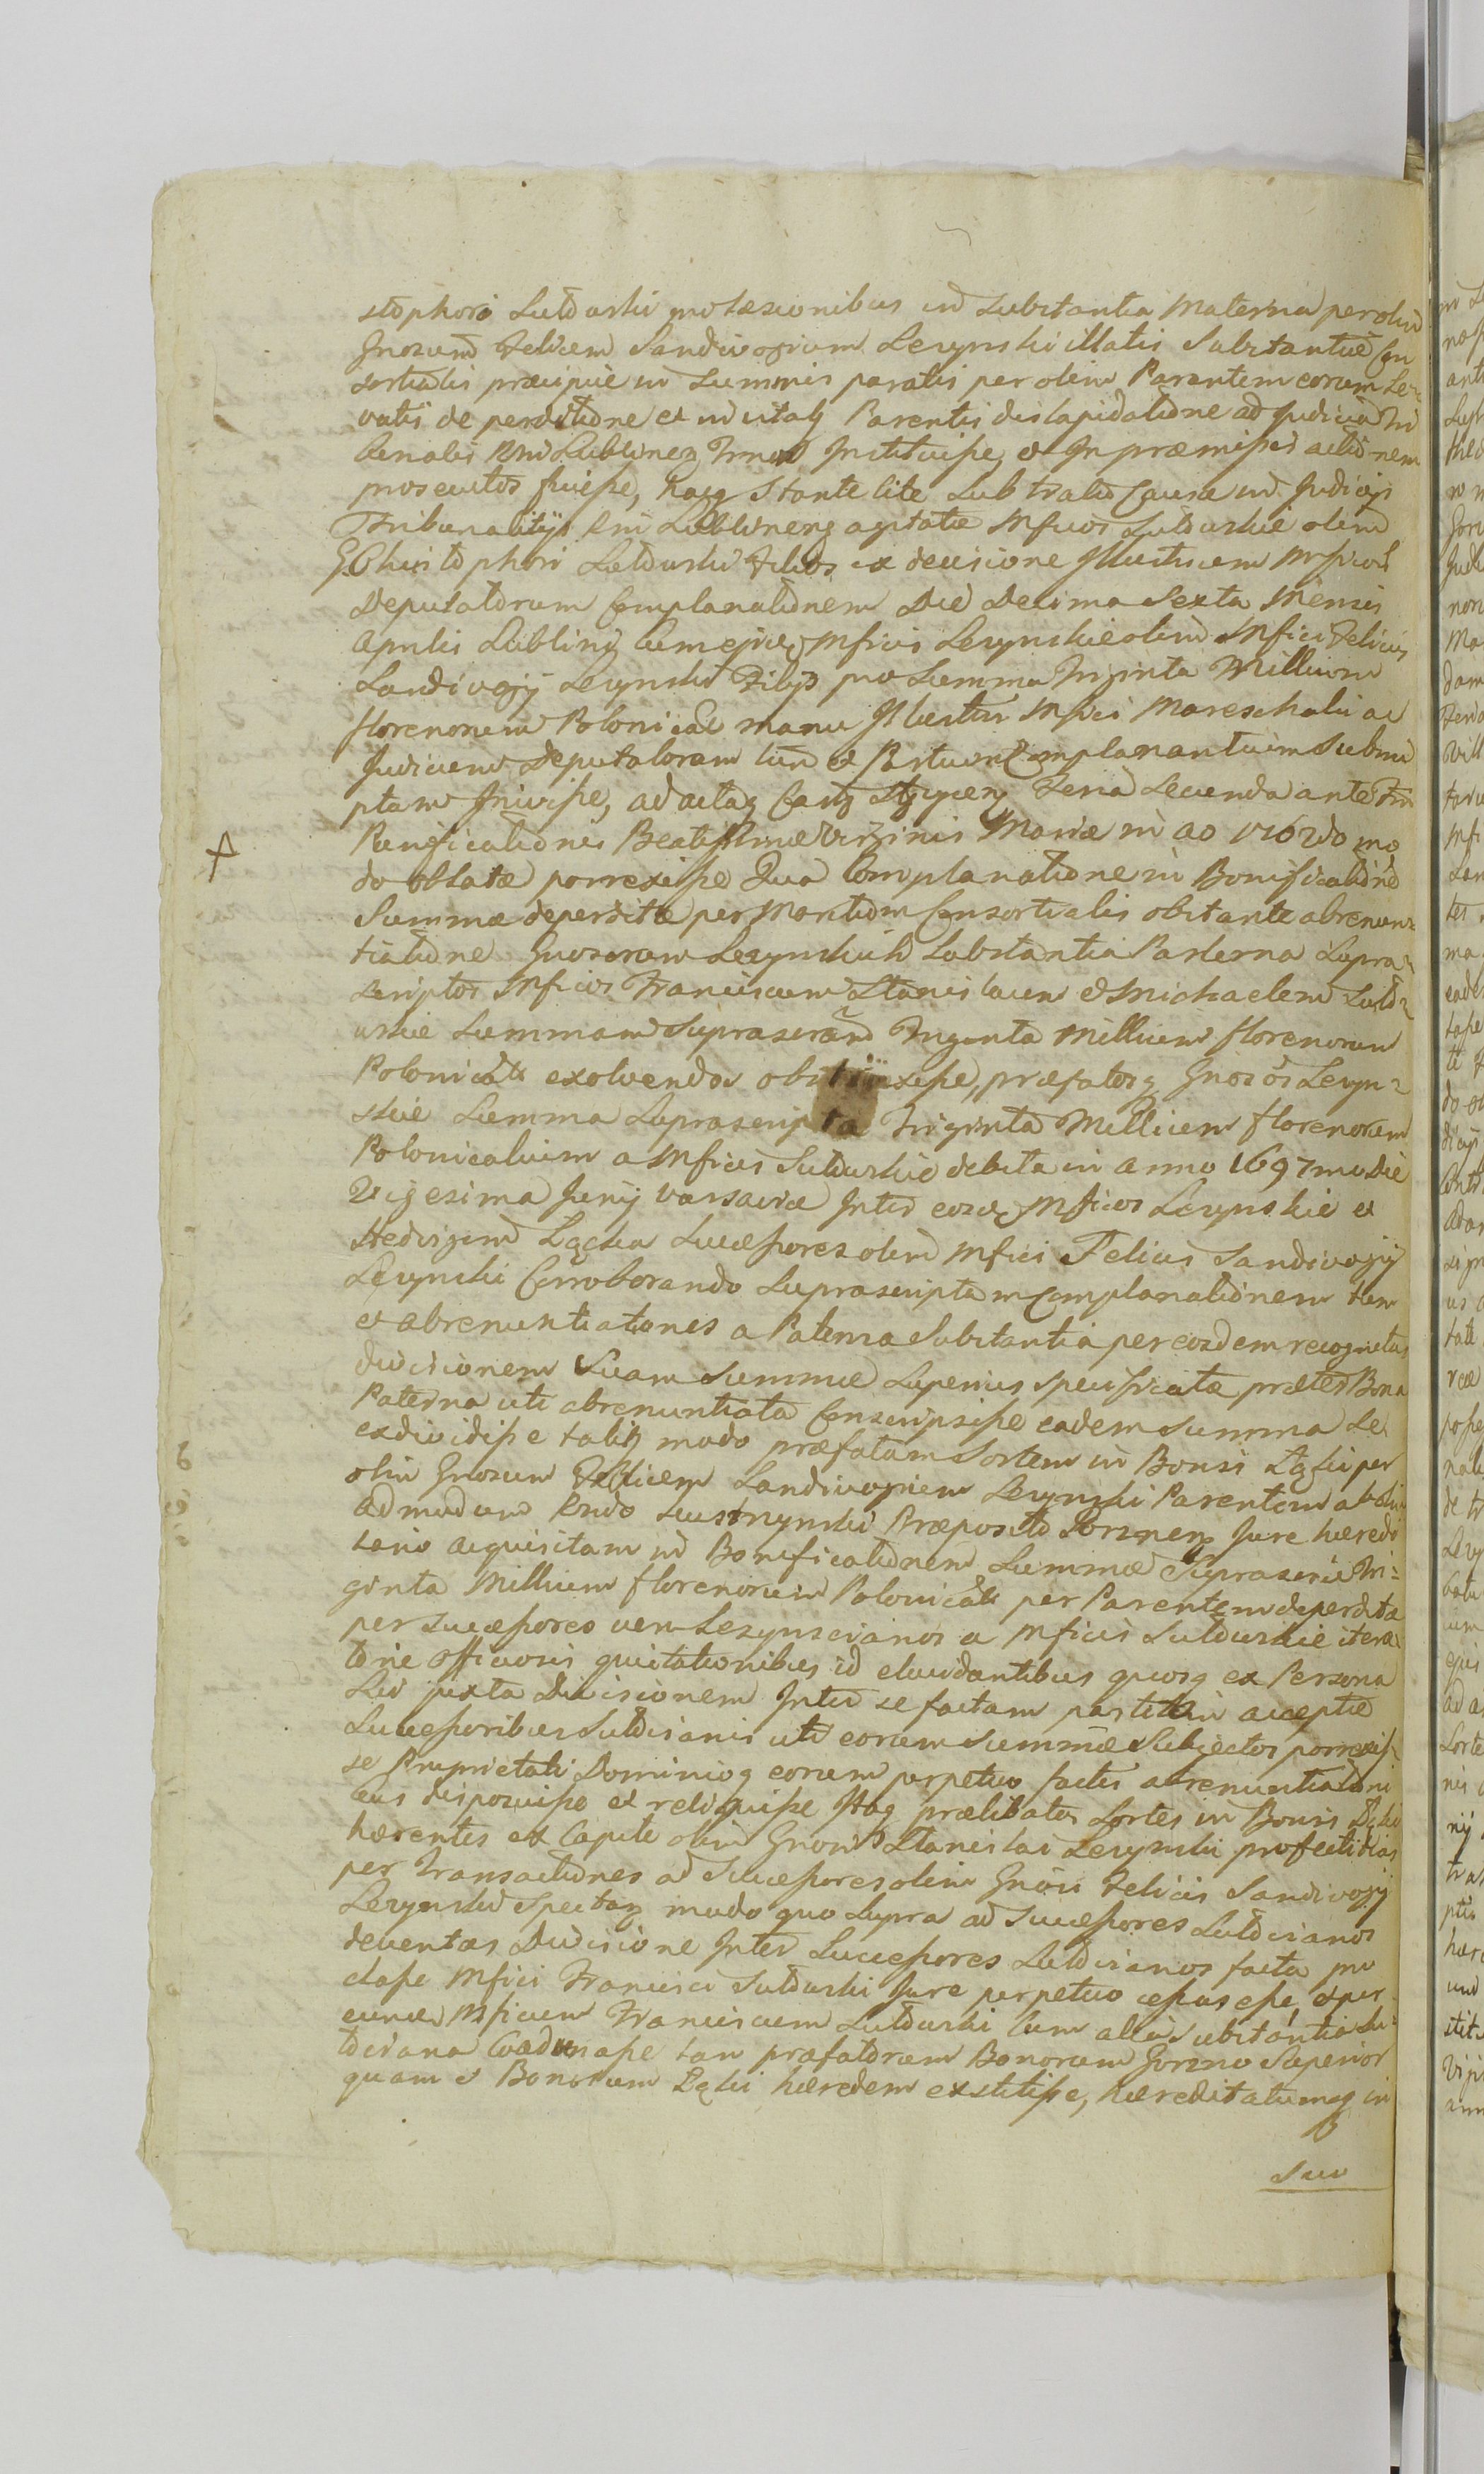 stophori Sutorski pro læsionibus in Substantia Materna per olim
Gnosum Felicem Sandivogium Lezynski illatis Substantiæ Con
sortialis præcipue in Summis paratis per olim Parentem eorum Le-
vatis de perditione et inutaq Parentis dislapidatione ad Judicia Tri
bunalis Rni Lublinen Instituisse, et In præmissis actionem
prosecutos fuisse, Hacq Stante lite Sub tractu Causæ in Judicijs
Tribunalitijs Rni Lublinens agitatæ Mficos Sutorskie olim
G. Christophori Sutorski Filios ex decisione Illustrium Mficor
Deputatorum Complanationem Die Decima Sexta Mensis
Aprilis Lublini cum ejsdem Mficis Lezynskie olim Mfici Felicis
Sandivogij Lezynski Filijs pro Summa Triginta Millium
florenorum Polonical manu Illustris Mfici Mareschalci ac
Judicum Deputatorum tum et Partium Complanantium Subscri
ptam Inivisse, ad actaq Castr Feria Secunda ante Fm
Purificationis Beatissimæ Virginis Mariæ in ao 1762do mo
do oblatæ porrexisse Qua Complanatione in Bonificatione
Summæ deperditæ per Mortem Consortialis obstante abrenun-
tiatione Gnosorum Lezynskich Substantia Paterna Supra-
scriptos Mficos Franciscum Stanislaum et Michaelem Suto-
rskie Summam Suprascram Triginta Millium florenorum
Polonicals exolvendos obstrinxisse, præfatosq Gnosos Lezyn-
skie Summa Suprascripta Triginta Millium florenorum
Polonicalium a Mficis Sutorskie debita in anno 1697mo Die
Vigesima Junij Varsaviæ Inter eosd Mficos Lezynskie et
Hedvigem Łącka Successores olim Mfici Felicis Sandivogij
Lezynski Corroborando Suprascriptam Complanationem tum
et abrenuntiationes a Paterna Substantia per eosdem recognitas
divisionem Suam Summæ Superius specificatæ præter Bona
Paterna uti abrenuntiata Conscripsisse eadem Summa Se
exdividisse taliq modo præfatam Sortem in Bonis Łąki per
olim Gnosum Felicem Sandivogium Lezynski Parentem ab olim
admodum Rndo Præposito Gorznen Jure hæredi
tario acquisitam in Bonificationem Summæ Suprascriæ Tri-
ginta Millium florenorum Polonicals per Parentem deperditæ
per Successores vero Lezynscianos a Mficis Sutorskie itera
tione officiosis quietationibus id elucidantibus quosq ex Persona
Sui juxta Divisionem Inter se factam partitim acceptæ
Successoribus Sutoscianis uti eorum Summæ Subjectos porrexis-
se Proprietati Dominioq eorum perpetuo factis abrenuntiationi
bus disposuisse et reliquisse Itaq prælibatas Sortes in Bonis Łąki
hærentes ex Capite olim Gnosi Stanislai Lezynski profectitias
per Transactiones ad Successores olim Gnosi Felicis Sandivogij
Lezynski Spectan modo quo Supra ad Successores Sutoscianos
deventas Divisione Inter Successores Sutoscianos facta pro
classe Mfici Francisci Sutorski Jure perpetuo cessas esse, et per
eund Mficum Franciscum Sutorski cum alia Substantia Su-
tosciana Coadunasse tan præfatorum Bonorum Gorzno Superior
quam et Bonorum Łąki hæredem exstitisse, hæreditatumq in
Suo